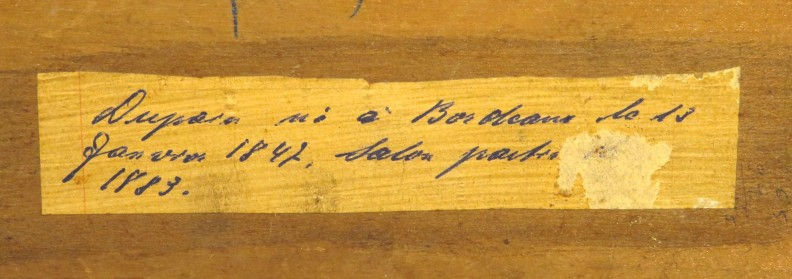 Dupain né à Bordeaux le 13
Janvier 1847, Salon partir
1883.